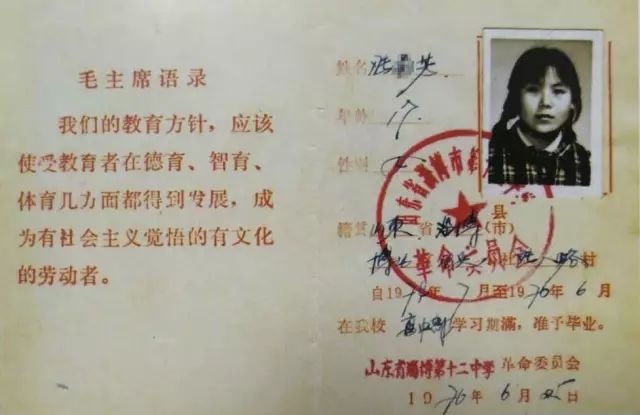 毛主席语录
我们的教育方针，应该
使受教育者在德育、智育、
体育几方面都得到发展，成
为有社会主义觉悟的有文化
的劳动者。
姓名
年龄
性别 女
籍贯山东省淄博县(市)
村
自19 年7月至1976年6月
在我校高中部学习期满，准予毕业。
山东省淄博第十二中学革命委员会
1976年6月25日
山东省淄博市第
革命委员会